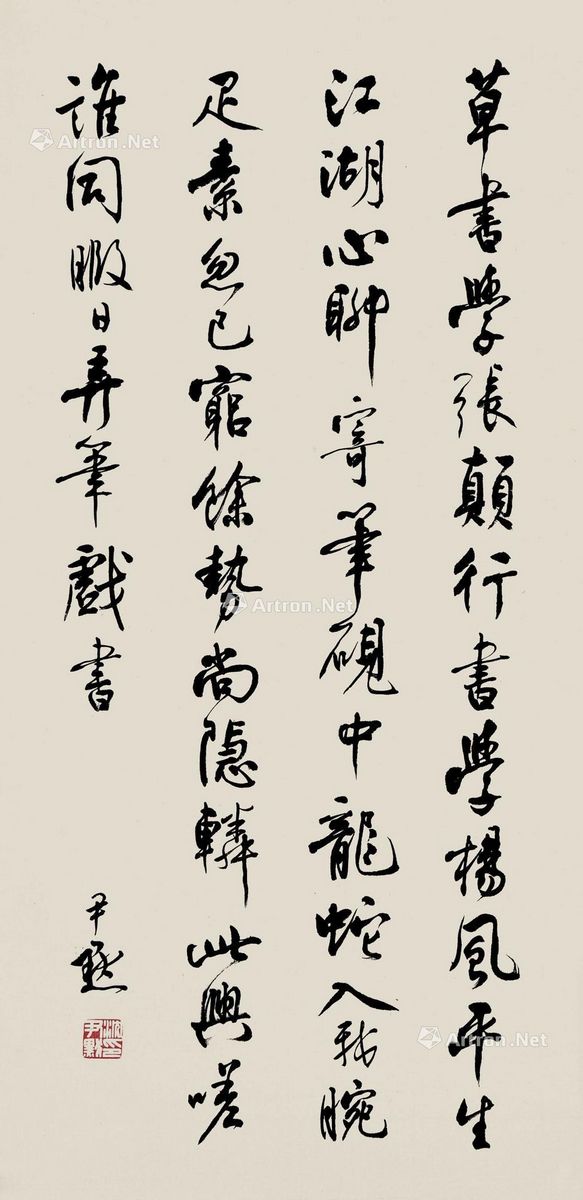 草書學張顛行書學楊風平生
江湖心聊寄筆硯中龍蛇入我腕
疋素忽已窮餘勢尚隱轔此興嗟
誰同暇日弄筆戲書
尹默
沈尹默印
Artron.Net
Artron.Net
Artron.Net
Artron.Net